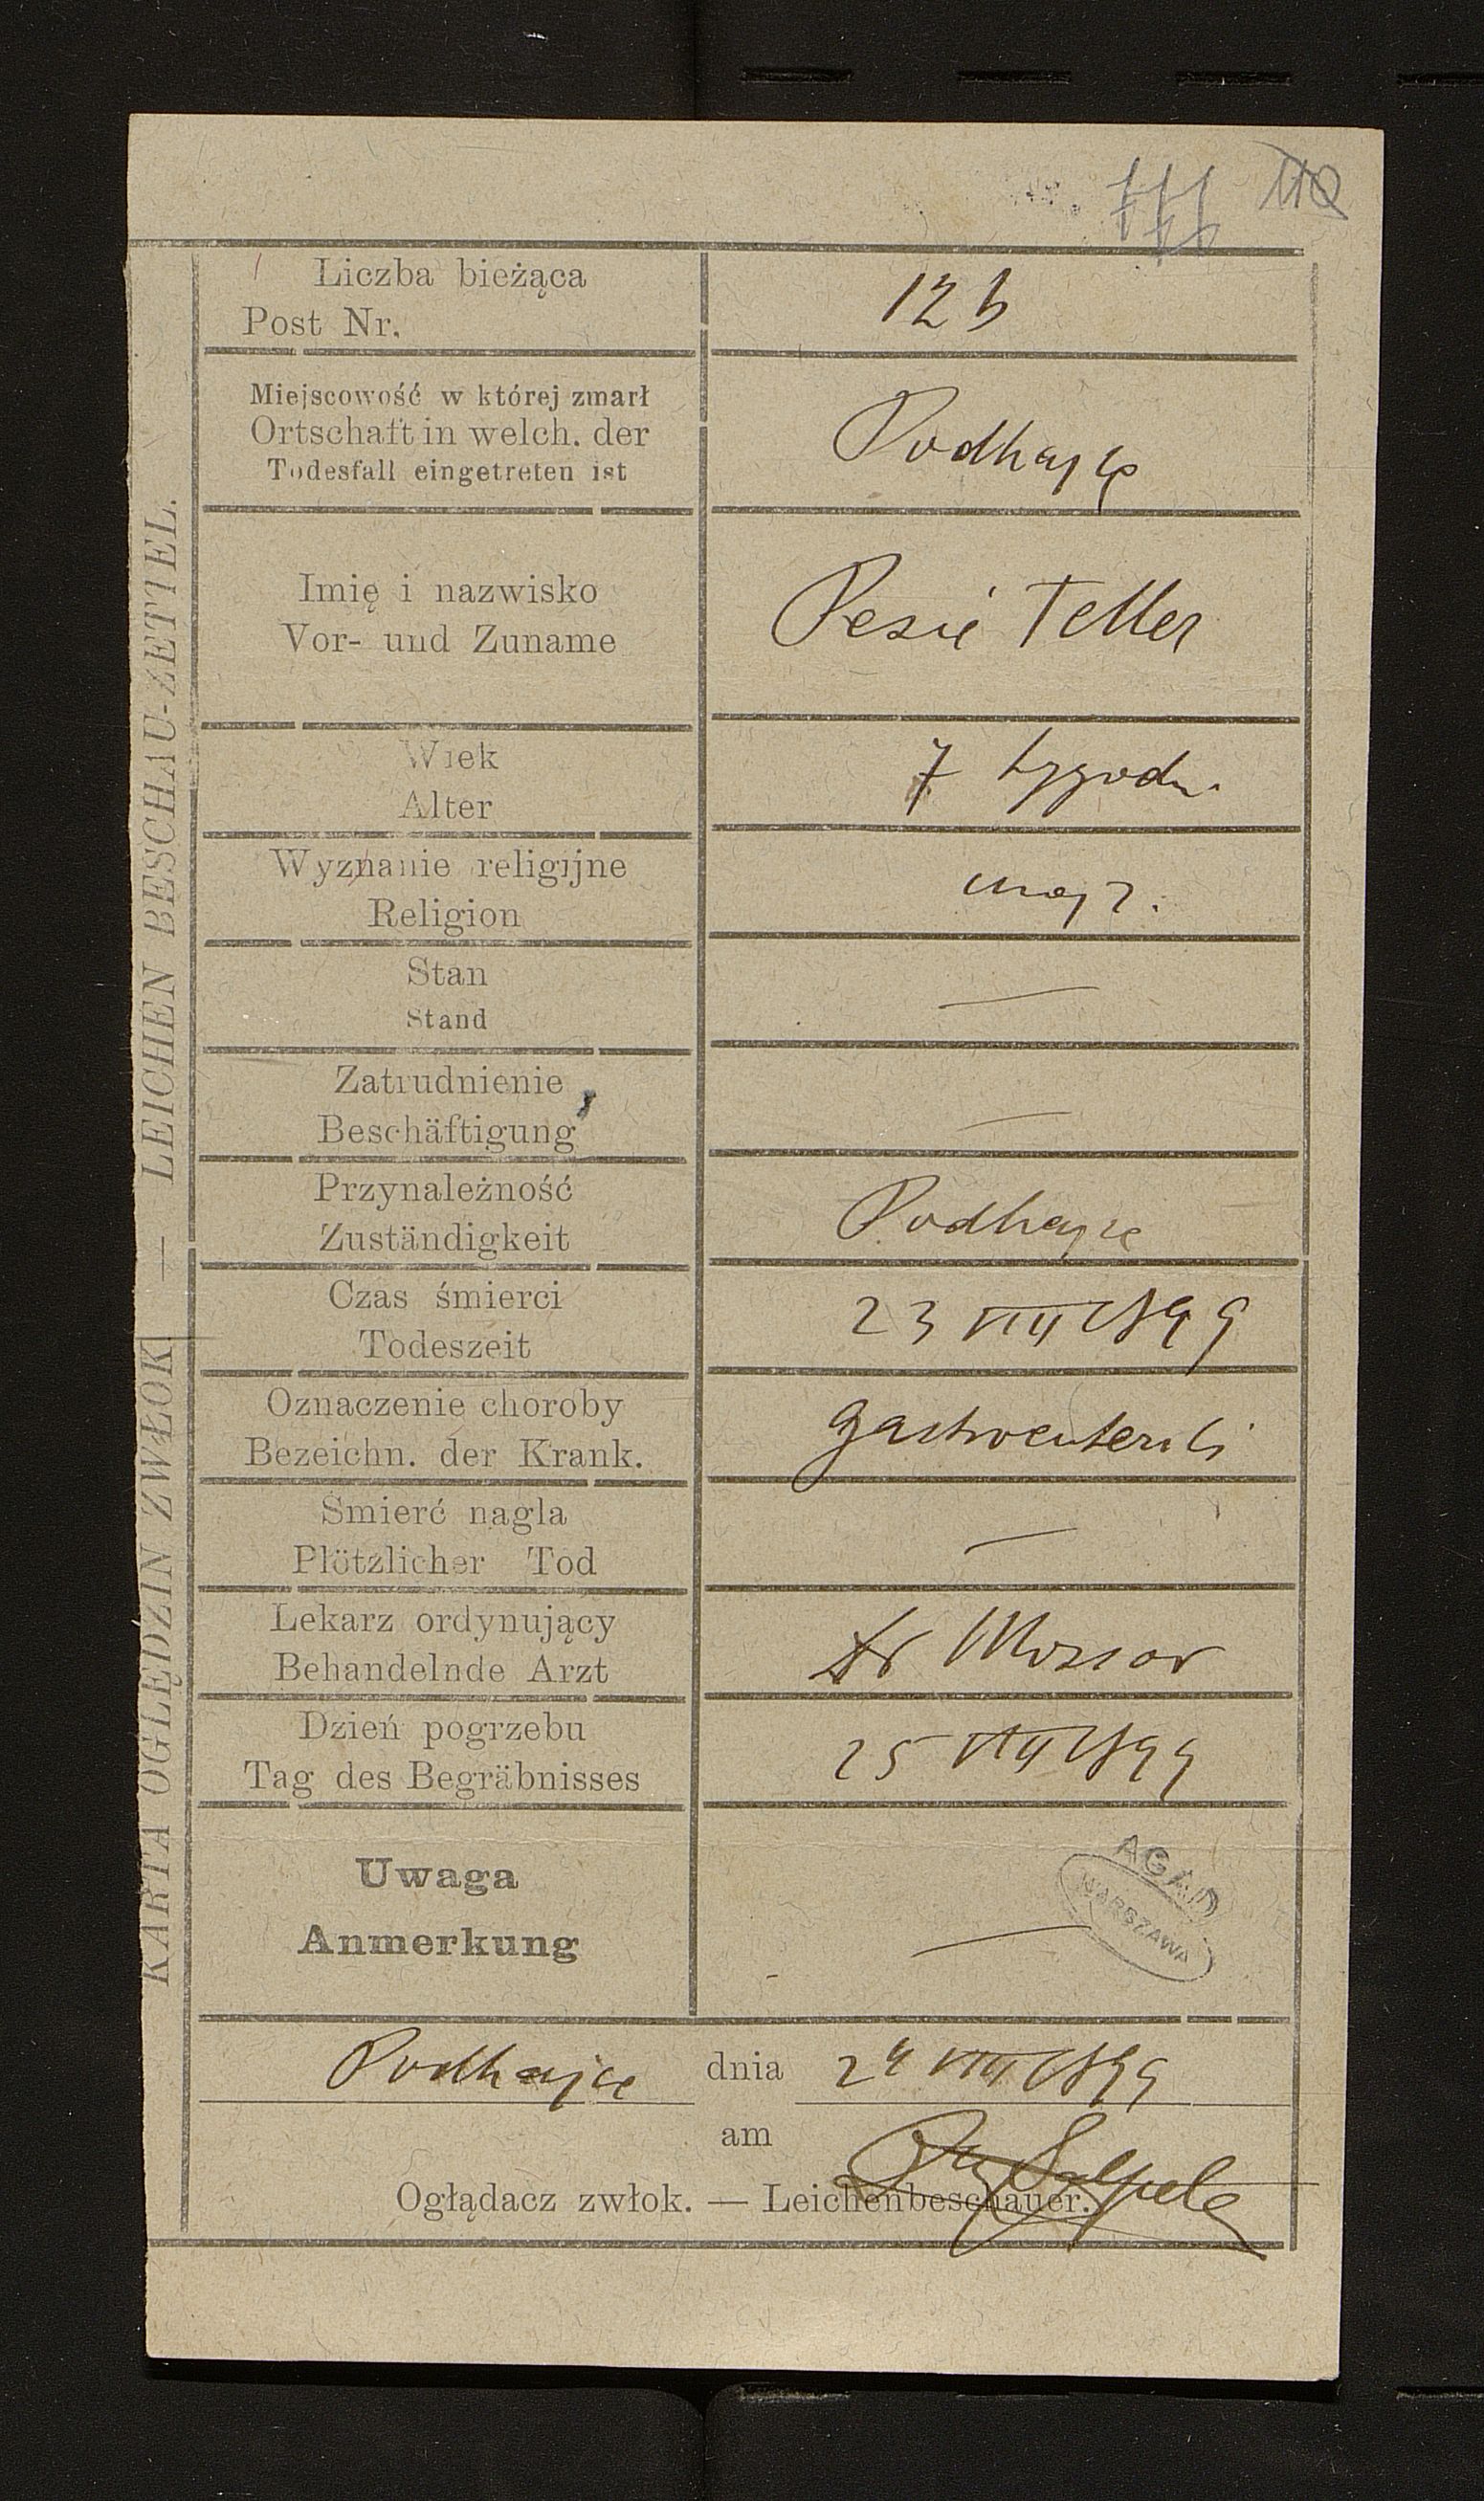 111 110
Liczba bieżąca
Post Nr.
126
Miejscowość w której zmarł
Ortschaft in welch. der
Todesfall eingetreten ist
Podhajce
Imię i nazwisko
Vor- und Zuname
Pesie Teller
Wiek
Alter
7 tygodn.
Wyznanie religijne
Religion
mojż.
Stan
Stand
—
Zatrudnienie
Beschäftigung
—
Przynależność
Zuständigkeit
Podhajce
Czas śmierci
Todeszeit
23 VIII 1899
Oznaczenie choroby
Bezeichn. der Krank.
gastroenteritis
Smierć nagla
Plötzlicher Tod
—
Lekarz ordynujący
Behandelnde Arzt
Dr
Dzień pogrzebu
Tag des Begräbnisses
25 VIII 1899
Uwaga
Anmerkung
—
AGAD
WARSZAWA
Podhajce dnia 24 VIII 1899
am
Oglądacz zwłok. — Leichenbeschauer.
KARTA OGLĘDZIN ZWŁOK — LEICHEN BESCHAU-ZETTEL.